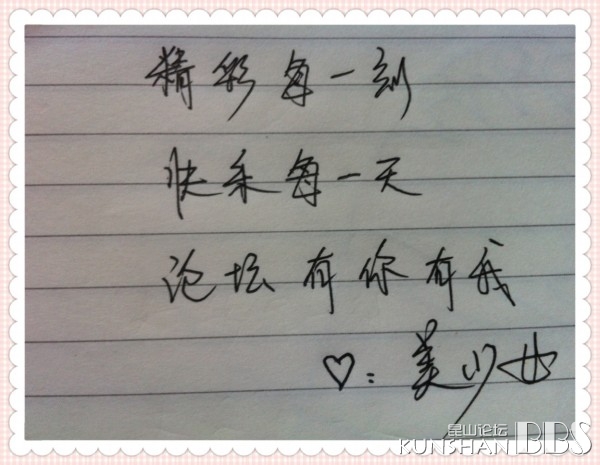 精彩每一刻
快乐每一天
论坛有你有我
♡：美少女
昆山论坛
KUNSHAN BBS